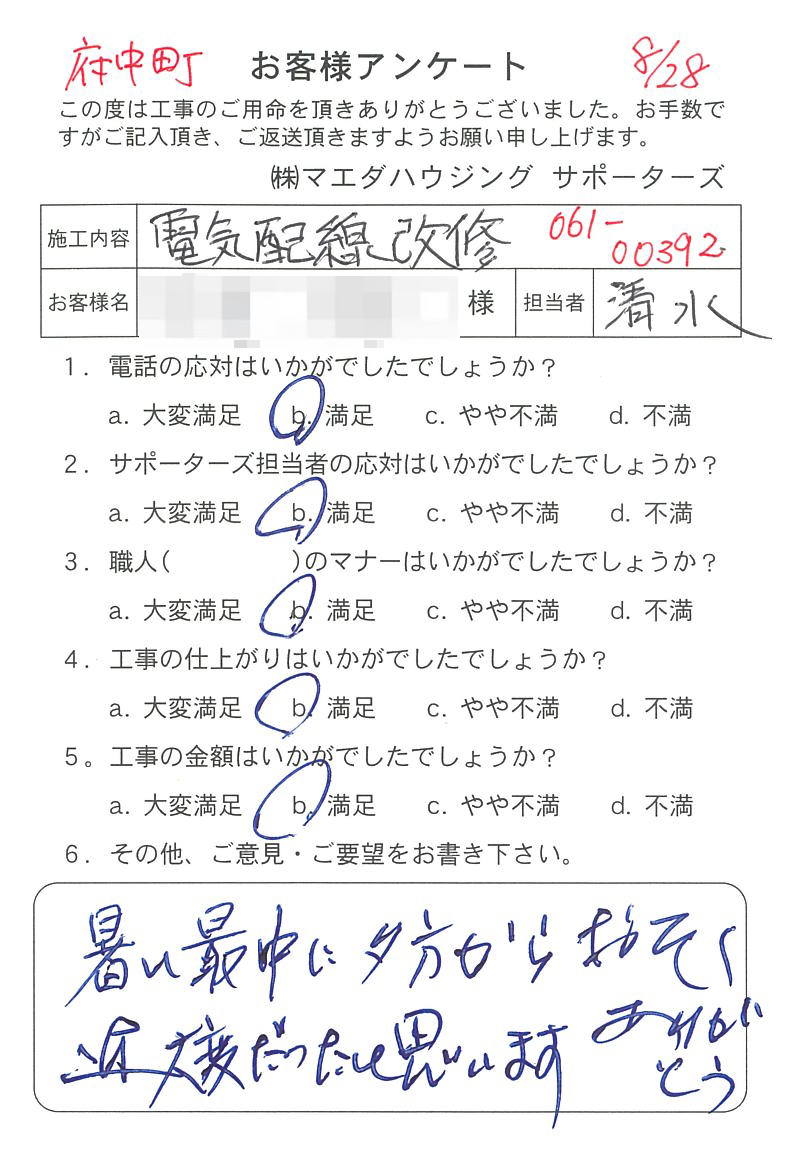 府中町 お客様アンケート 8/28
この度は工事のご用命を頂きありがとうございました。お手数で
すがご記入頂き、ご返送頂きますようお願い申し上げます。
㈱マエダハウジング サポーターズ
施工内容 電気配線改修 061-00392
お客様名 様 担当者 清水
1. 電話の応対はいかがでしたでしょうか?
a. 大変満足 b. 満足 c. やや不満 d. 不満
2. サポーターズ担当者の応対はいかがでしたでしょうか?
a. 大変満足 b. 満足 c. やや不満 d. 不満
3. 職人( )のマナーはいかがでしたでしょうか?
a. 大変満足 b. 満足 c. やや不満 d. 不満
4. 工事の仕上がりはいかがでしたでしょうか?
a. 大変満足 b. 満足 c. やや不満 d. 不満
5。工事の金額はいかがでしたでしょうか?
a. 大変満足 b. 満足 c. やや不満 d. 不満
6. その他、ご意見・ご要望をお書き下さい。
暑い最中に夕方からおそく
迄大変だったと思います ありがとう